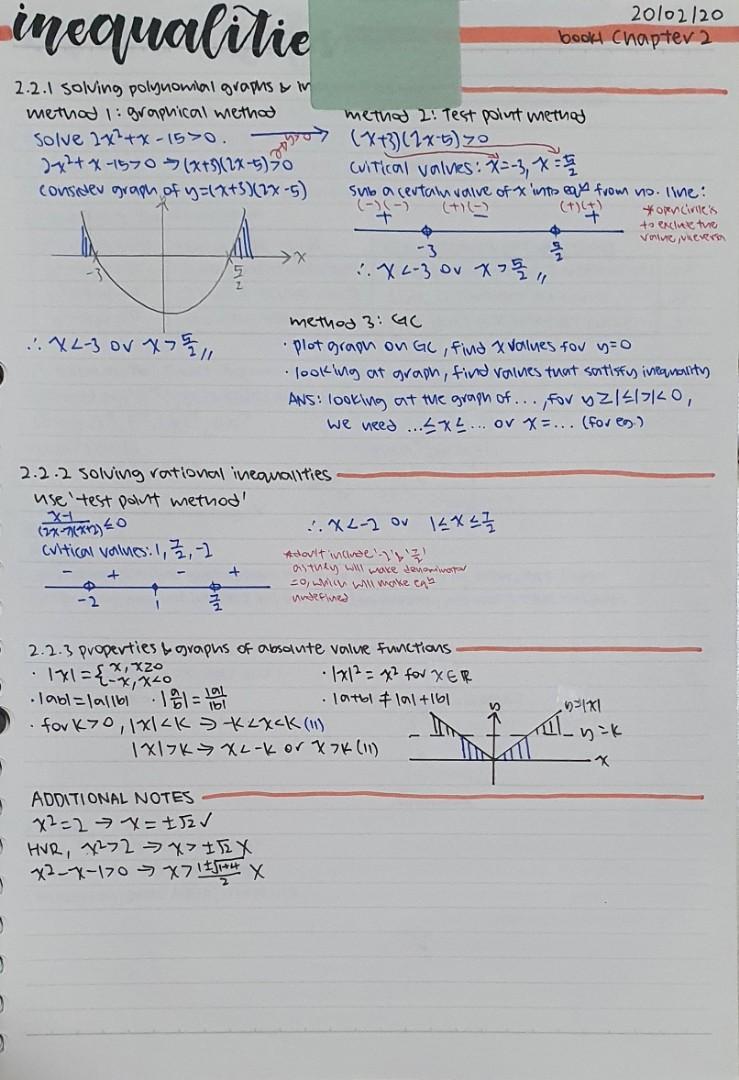 inequalitie
20/02/20
book1 Chapter 2
2.2.1 solving polynomial graphs & in
method 1: graphical method
solve 2x²+x-15>0.
2x²+x-15>0 → (x+3)(2x-5)>0
consider graph of y=(x+3)(2x-5)
-3 5/2 x
∴ x<-3 or x>5/2 //
method 2: Test point method
(x+3)(2x-5)>0
critical values: x=-3, x=5/2
sub a certain value of x into eqn from no. line:
(-)(-) (+)(-) (+)(+)
+ - +
-3 5/2
*open circle is
to exclude the
value, viceversa
∴ x<-3 or x>5/2 //
method 3: GC
· plot graph on GC, find x values for y=0
· looking at graph, find values that satisfy inequality
ANS: looking at the graph of ..., for y≥/≤/>/<0,
we need ...≤x≤... or x=... (for eg.)
2.2.2 solving rational inequalities
use 'test point method'
x-1/(2x-7)(x+2) ≤0
critical values: 1, 7/2, -2
- + - +
-2 1 7/2
∴ x<-2 or 1≤x≤7/2
*don't include '-2' & '7/2'
as they will make denominator
=0, which will make eqn
undefined
2.2.3 properties & graphs of absolute value functions
· |x| = { x, x≥0
{ -x, x<0
· |ab|=|a||b| · |a/b|=|a|/|b|
· for k>0, |x|<k ⇒ -k<x<k (II)
|x|>k ⇒ x<-k or x>k (II)
· |x|² = x² for x∈ℝ
· |a+b| ≠ |a|+|b|
y y=|x|
y=k
x
ADDITIONAL NOTES
x²=2 → x=±√2 ✓
HVR, x²>2 → x>±√2 X
x²-x-1>0 → x>1±√1+4/2 X